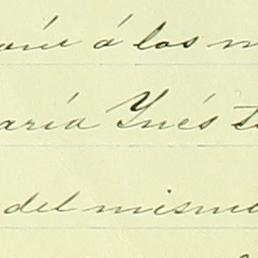 á los
aría Ynés
del mismo